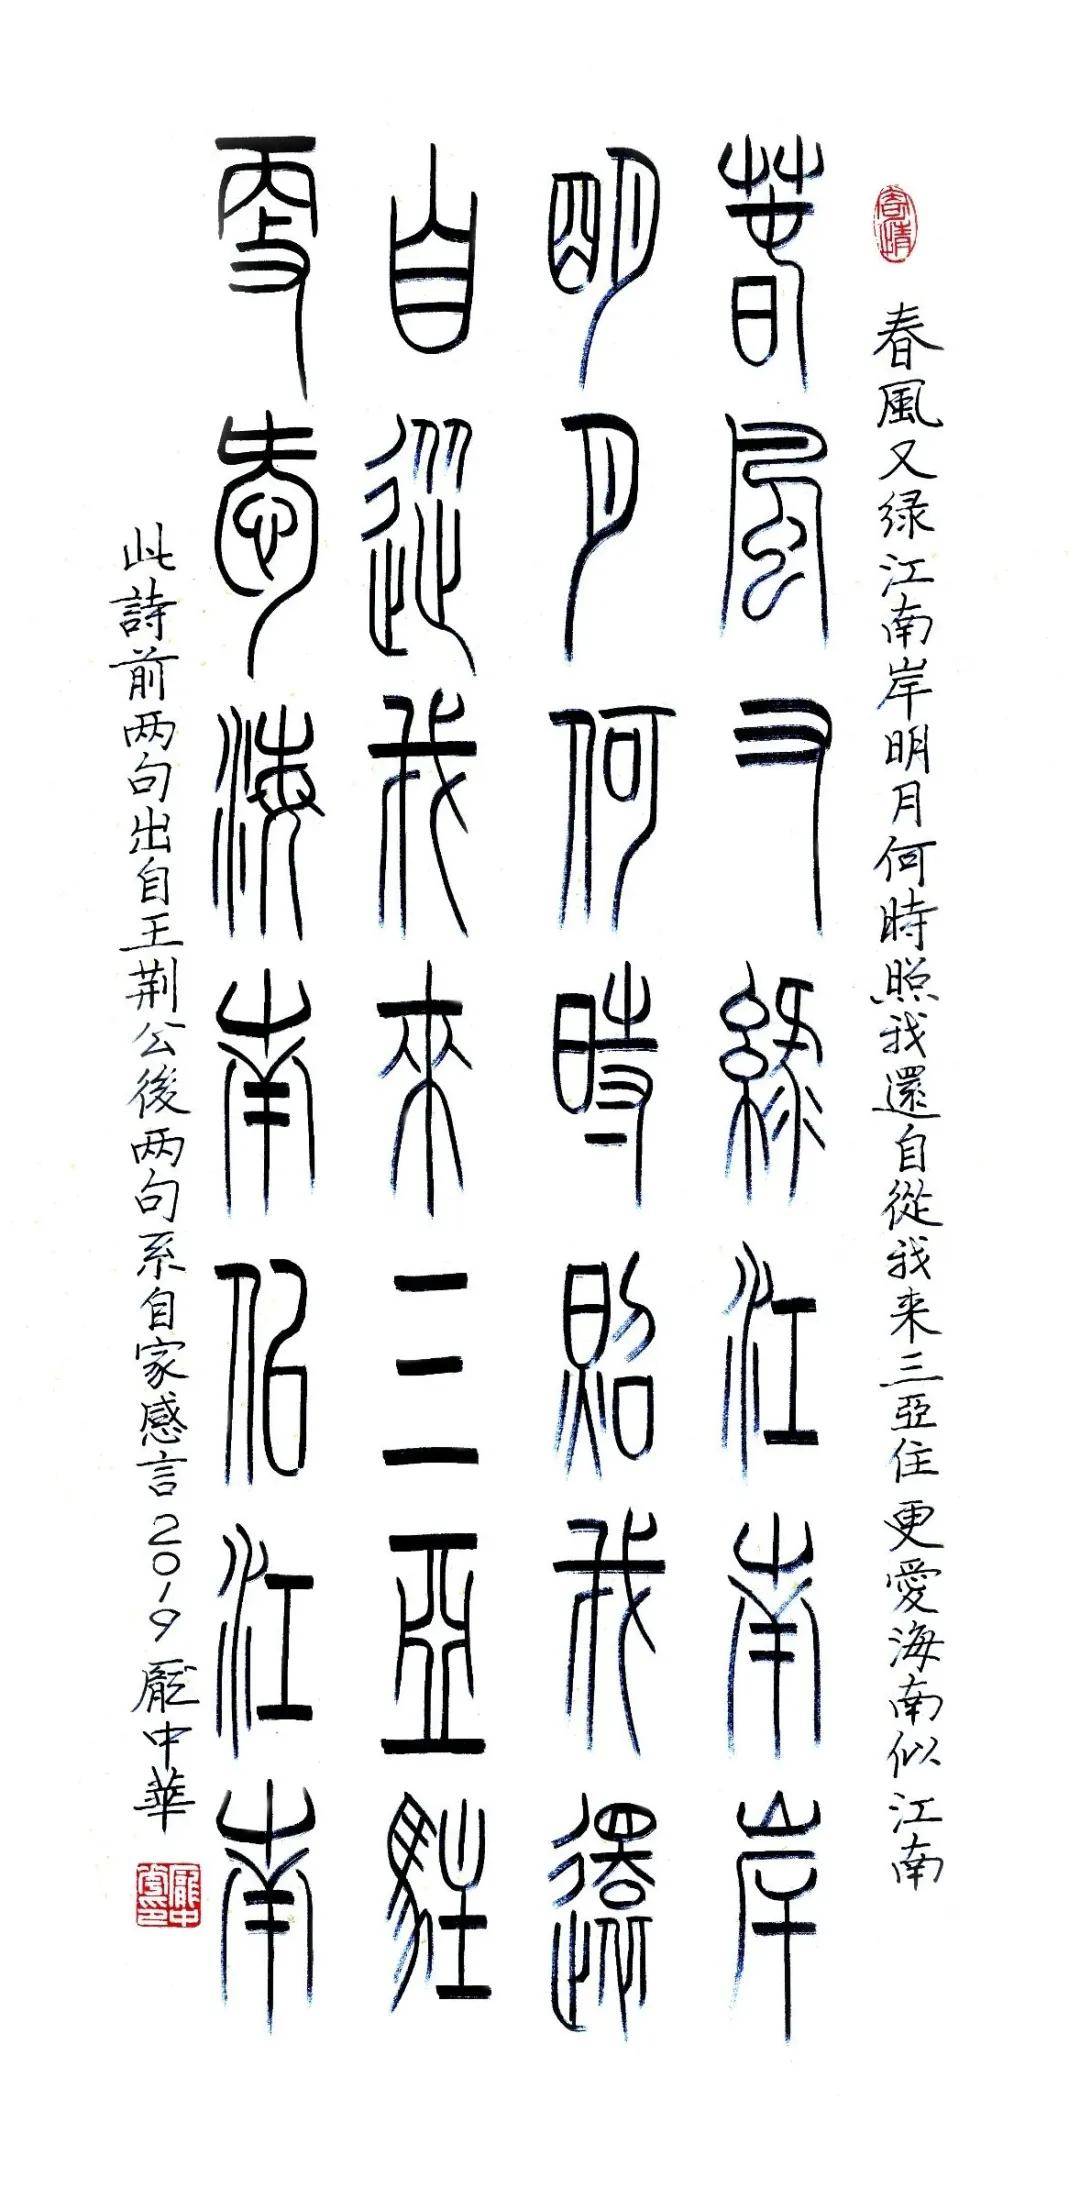 寄情
春風又绿江南岸明月何時照我還自從我来三亞住更愛海南似江南
春風又綠江南岸
明月何時照我還
自從我來三亞駐
更愛海南似江南
此詩前两句出自王荆公後两句系自家感言2019龐中華
龐中華印